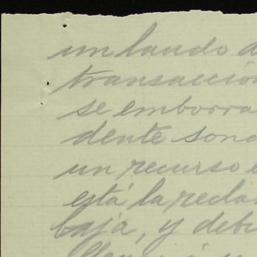 un laudo a
transacción
se emborra
dente sona
un recurso e
está la recla
baja, y debi